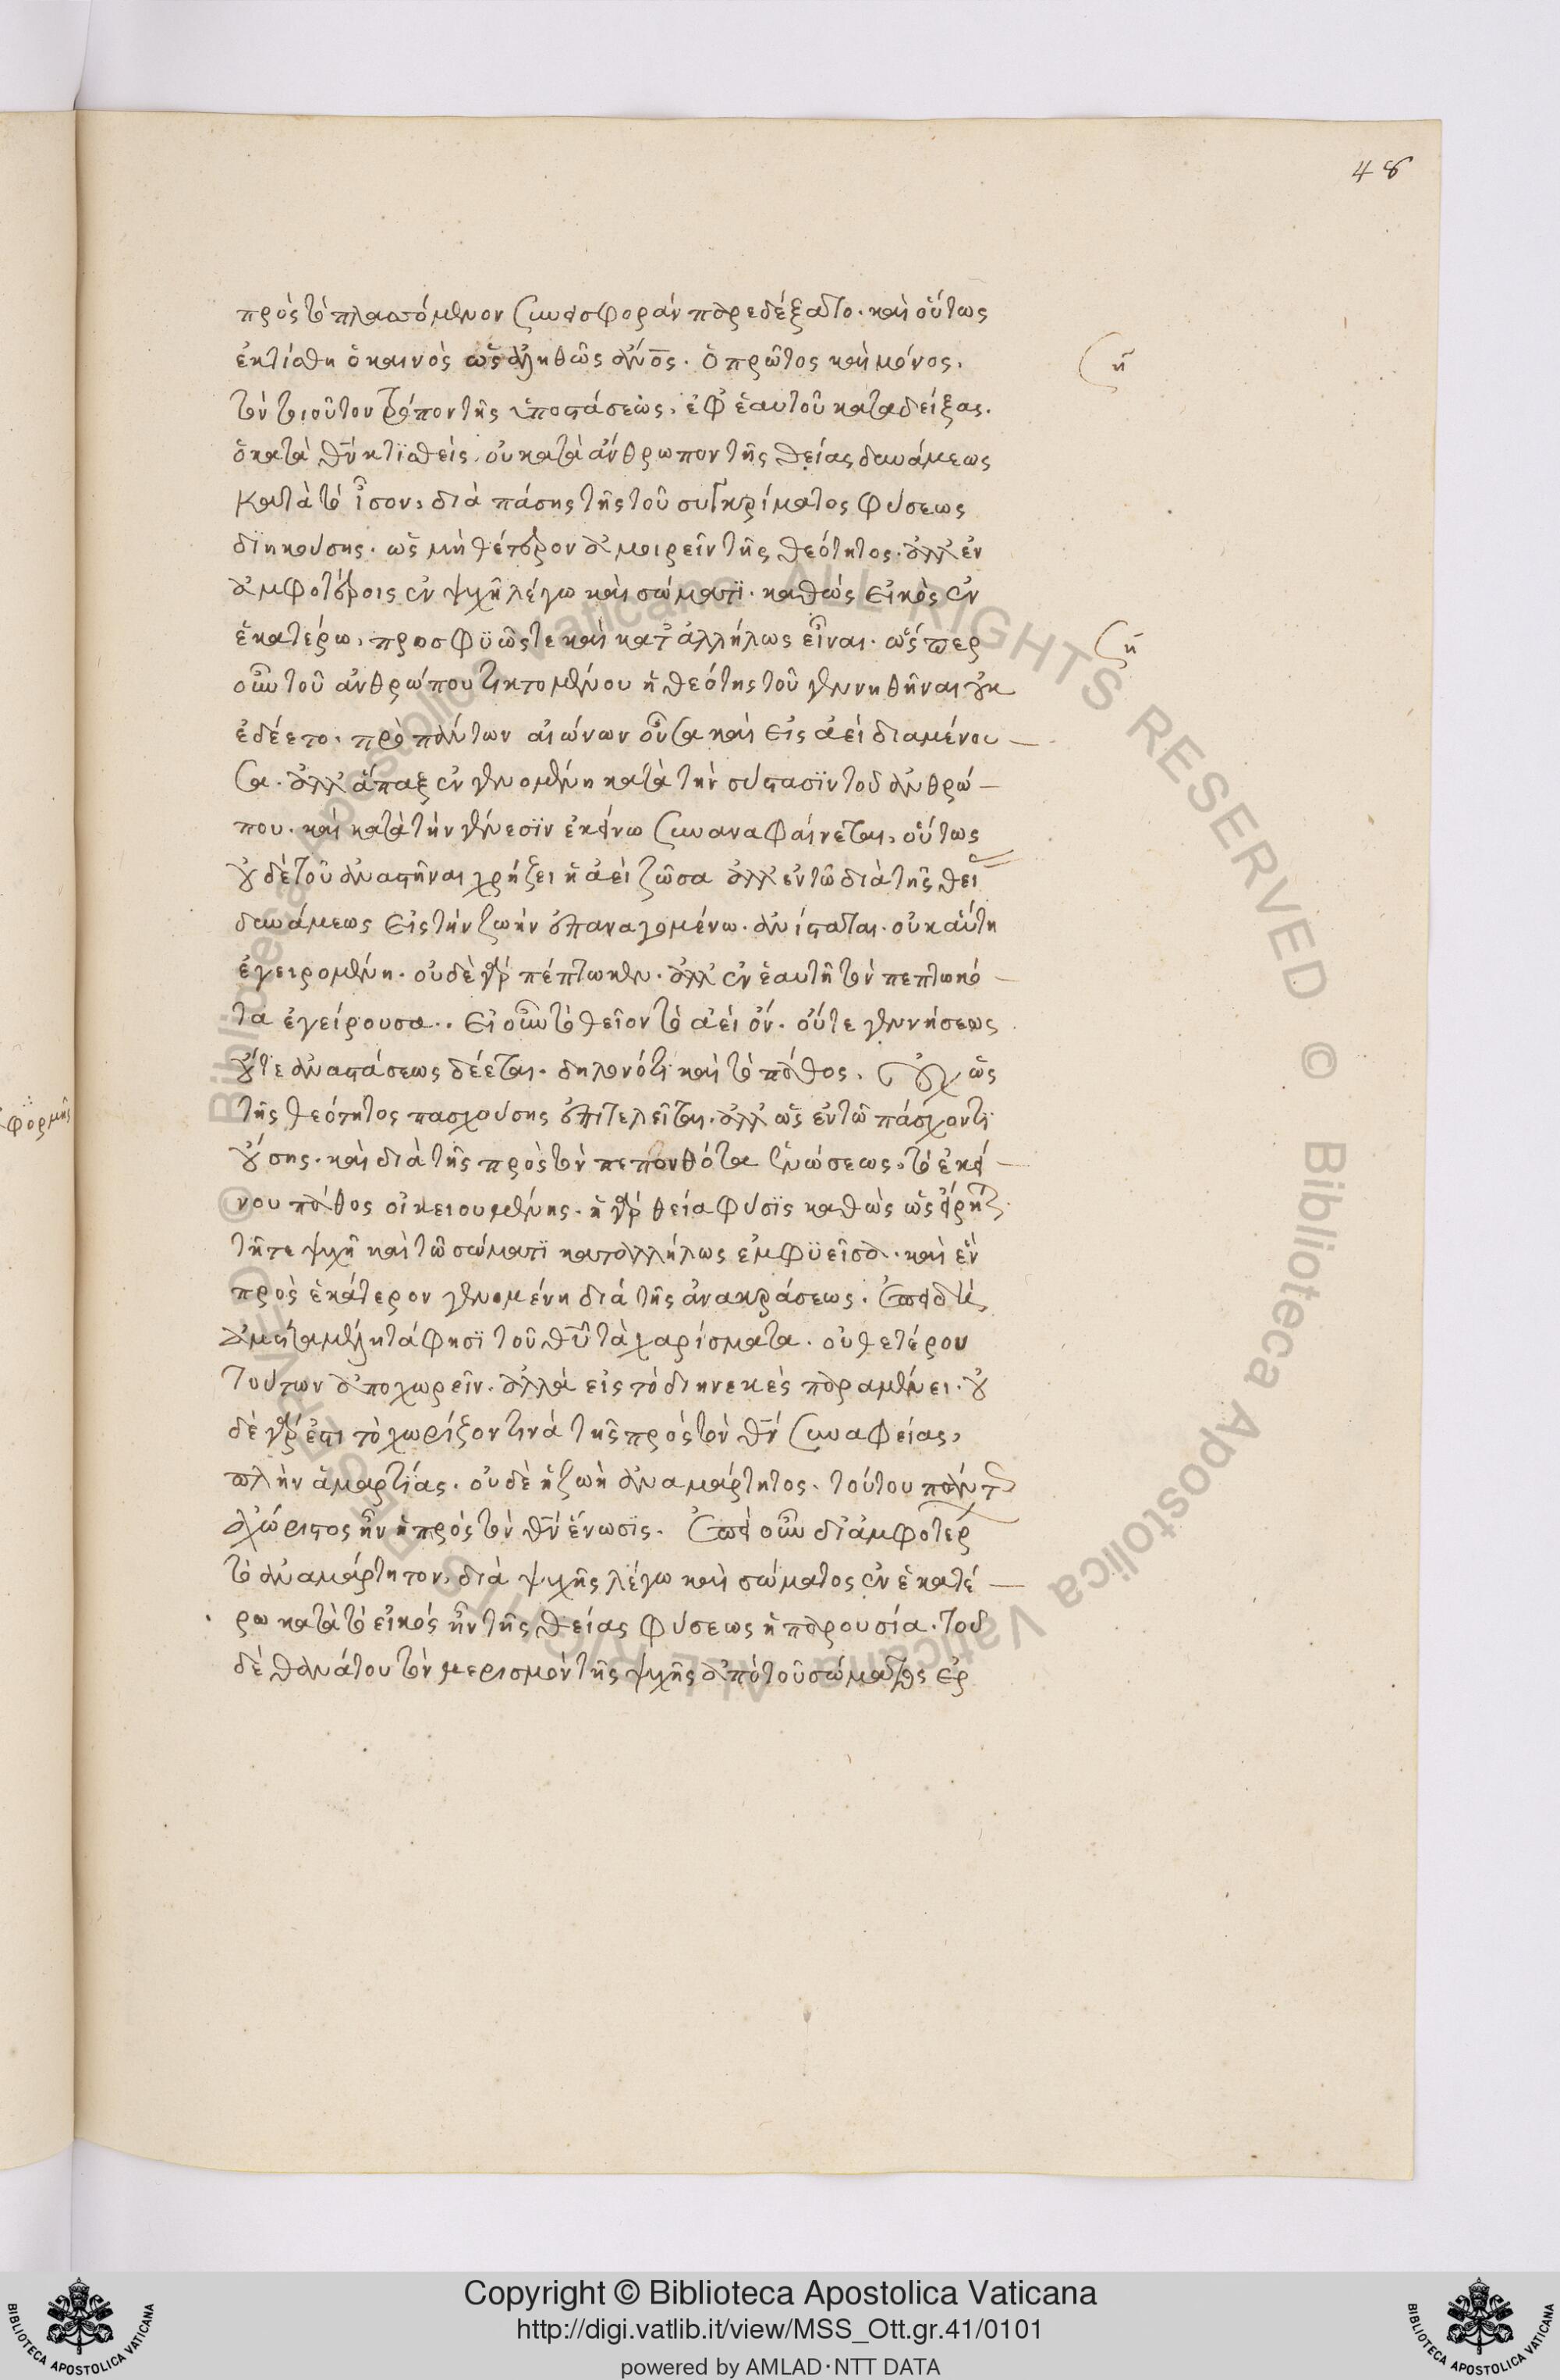 48
πρὸς τὸ πλασσόμενον συνεισφορὰν παρεδέξατο. καὶ οὕτως
ἐκτίσθη ὁ καινὸς ὡς ἀληθῶς ἄνος. ὁ πρῶτος καὶ μόνος.
τὸν τοιοῦτον τρόπον τῆς ὑποστάσεως, ἐφ ἑαυτοῦ καταδείξας.
ὁ κατὰ θν κτϊσθείς. οὐ κατὰ ἄνθρωπον τῆς θείας δυνάμεως
κατὰ τὸ ἶσον, διὰ πάσης τῆς τοῦ συγκρίματος φύσεως
διηκούσης. ὡς μὴ θέτερον ἀμοιρεῖν τῆς θεότητος. ἀλλ ἐν
ἀμφοτέροις ἐν ψχῆ λέγω καὶ σώματϊ. καθὼς εἰκὸς ἐν
ἑκατέρω, προσφϋῶς τε καὶ κατ ἀλλήλως εἶναι. ὥσπερ
οὖν τοῦ ἀνθρώπου τικτομένου ἡ θεότης τοῦ γεννηθῆναι οὐκ
ἐδέετο. πρὸ πάντων αἰώνων οὖσα καὶ εἰς ἀεὶ διαμένου
σα. ἀλλ ἅπαξ ἐν γενομένη κατὰ τὴν σύστασϊν τοῦ ἀνθρώ
που. καὶ κατὰ τὴν γένεσϊν ἐκείνω συναναφαίνεται, οὕτως
οὐδὲ τοῦ ἀναστῆναι χρήζει ἡ ἀεὶ ζῶσα ἀλλ ἐν τῶ διὰ τῆς θεί
δυνάμεως εἰς τὴν ζωὴν ἐπαναγομένω. ἀνίσταται. οὐκ αὐτὴ
ἐγειρομένη. οὐδὲ γὰρ πέπτωκεν. ἀλλ ἐν ἑαυτῆ τὸν πεπτωκό
τα ἐγείρουσα.. Εἰ οὖν τὸ θεῖον τὸ ἀεὶ ὄν. οὔτε γεννήσεως
οὔτε ἀναστάσεως δέεται. δηλονότι καὶ τὸ πάθος. οὐχ ὡς
τῆς θεότητος πασχούσης ἐπιτελεῖται. ἀλλ ὡς ἐν τῶ πάσχοντι
οὔσης. καὶ διὰ τῆς πρὸς τὸν πεπονθότα ἑνώσεως, τὸ ἐκεί
νου πάθος οἰκειουμένης. ἡ γὰρ θεία φύσϊς καθὼς εἴρητ
τῆ τε ψχῆ καὶ τῶ σώματϊ καταλλήλως ἐμφϋεῖσα. καὶ ἓν
πρὸς ἑκάτερον γενομένη διὰ τῆς ἀνακράσεως. ἐπειδὴ
ἀμεταμέλητά φησϊ τοῦ θῦ τὰ χαρίσματα. οὐθετέρου
τούτων ἀποχωρεῖν. ἀλλὰ εἰς τὸ διηνεκὲς παραμένει. οὐ
δὲ γάρ ἐστι τὸ χωρίζον τινὰ τῆς πρὸς τὸν θν συναφείας,
πλὴν ἁμαρτίας. οὐδὲ ἡ ζωὴ ἀναμάρτητος. τούτου πάντ
ἀχώριστος ἦν ἡ πρὸς τὸν θν ἕνωσϊς. ἐπεὶ οὖν δι ἀμφοτέρ
τὸ ἀναμάρτητον, διὰ ψχῆς λέγω καὶ σώματος ἐν ἑκατέ
ρω κατὰ τὸ εἰκὸς ἦν τῆς θείας φύσεως ἡ παρουσία. τοῦ
δὲ θανάτου τὸν μερισμὸν τῆς ψχῆς ἀπὸ τοῦ σώματος ἐρ
Copyright © Biblioteca Apostolica Vaticana
http://digi.vatlib.it/view/MSS_Ott.gr.41/0101
powered by AMLAD·NTT DATA